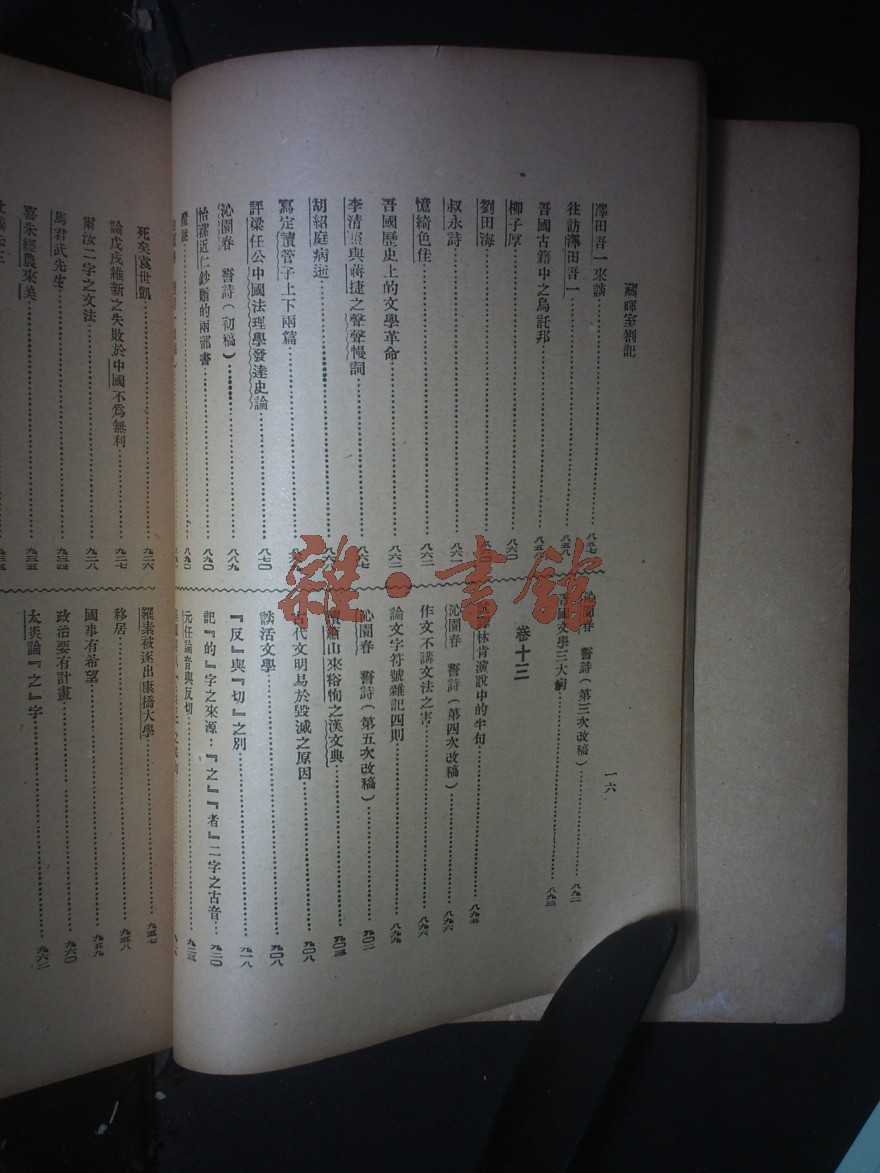 藏暉室劄記
一六
澤田吾一來談……八五七
往訪澤田吾一……八五八
吾國古籍中之烏託邦……八五
柳子厚……八六〇
劉田海……八六〇
叔永詩……八六一
憶綺色佳……八六二
吾國歷史上的文學革命……八六二
李清照與蔣捷之聲聲慢詞……八六七
胡紹庭病逝……八六
寫定讀管子上下兩篇……八
評梁任公中國法理學發達史論……八七〇
沁園春 誓詩(初稿)……八八九
怡蓀近仁鈔贈的兩部書……八九〇
燈謎……八九〇
沁園春 誓詩(第三次改稿)……八九二
吾國文學三大病……八九三
卷十三
林肯演說中的半句……八九五
沁園春 誓詩(第四次改稿)……八九六
作文不講文法之害……八九六
論文字符號雜記四則……八九六
沁園春 誓詩(第五次改稿)……九〇二
讀蕭山來裕恂之漢文典……九〇三
古代文明易於毀滅之原因……九〇八
談活文學……九〇八
『反』與『切』之別……九一八
記『的』字之來源:『之』『者』二字之古音……九二〇
元任論音與反切……九二三
死矣袁世凱……九二六
論戊戌維新之失敗於中國不爲無利……九二七
爾汝二字之文法……九二八
馬君武先生……九三四
喜朱經農來美……九三五
羅素被逐出康橋大學……九五七
移居……九五八
國事有希望……九五九
政治要有計畫……九六〇
太炎論『之』字……九六二
雜·書館